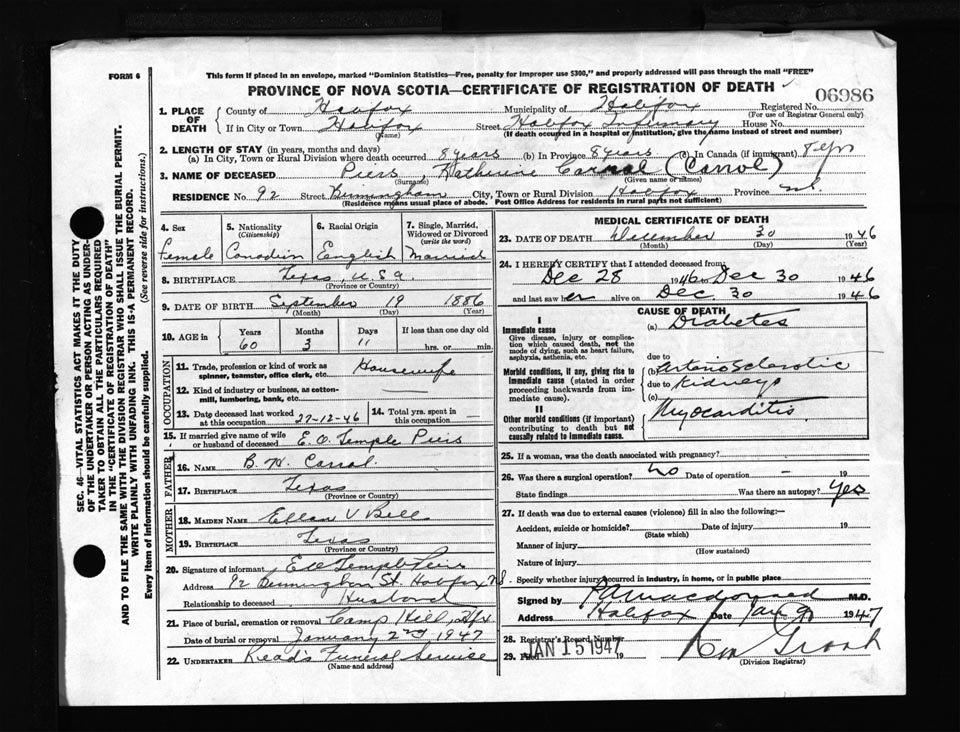 FORM 6
This form if placed in an envelope, marked "Dominion Statistics—Free, penalty for improper use $300," and properly addressed will pass through the mail "FREE"
PROVINCE OF NOVA SCOTIA—CERTIFICATE OF REGISTRATION OF DEATH
06986
1. PLACE OF DEATH
County of Halifax Municipality of Halifax Registered No.
(For use of Registrar General only)
If in City or Town Halifax Street Halifax Infirmary House No.
(Name) (If death occurred in a hospital or institution, give the name instead of street and number)
2. LENGTH OF STAY (in years, months and days)
(a) In City, Town or Rural Division where death occurred 8 years (b) In Province 8 years (c) In Canada (if immigrant)
3. NAME OF DECEASED Piers, Katherine Carrol (Carrol)
(Surname) (Given name or names)
RESIDENCE No. 92 Street Birmingham City, Town or Rural Division Halifax Province N.S.
(Residence means usual place of abode. Post Office Address for residents in rural parts not sufficient)
4. Sex
Female
5. Nationality (Citizenship)
Canadian
6. Racial Origin
English
7. Single, Married, Widowed or Divorced (write the word)
Married
8. BIRTHPLACE Texas U.S.A.
(Province or Country)
9. DATE OF BIRTH September 19 1886
(Month) (Day) (Year)
10. AGE in Years Months Days If less than one day old
60 3 11 hrs. or min.
OCCUPATION
11. Trade, profession or kind of work as spinner, teamster, office clerk, etc. Housewife
12. Kind of industry or business, as cotton-mill, lumbering, bank, etc. —
13. Date deceased last worked at this occupation 27-12-46
14. Total yrs. spent in this occupation —
15. If married give name of wife or husband of deceased E. O. Temple Piers
FATHER
16. NAME B. H. Carrol
17. BIRTHPLACE Texas
(Province or Country)
MOTHER
18. MAIDEN NAME Ellen V Bell
19. BIRTHPLACE Texas
(Province or Country)
20. Signature of informant E O Temple Piers
Address 92 Birmingham St. Halifax, N.S.
Relationship to deceased Husband
21. Place of burial, cremation or removal Camp Hill, Hfx
Date of burial or removal January 2nd, 1947
22. UNDERTAKER Read's Funeral Service
(Name and address)
MEDICAL CERTIFICATE OF DEATH
23. DATE OF DEATH December 30 1946
(Month) (Day) (Year)
24. I HEREBY CERTIFY that I attended deceased from:
Dec 28 1946 to Dec 30 1946
and last saw her alive on Dec. 30 1946
CAUSE OF DEATH
I
Immediate cause
Give disease, injury or complication which caused death, not the mode of dying, such as heart failure, asphyxia, asthenia, etc.
(a) Diabetes
due to
Morbid conditions, if any, giving rise to immediate cause (stated in order proceeding backwards from immediate cause).
(b) Arteriosclerotic
due to Kidneys
II
Other morbid conditions (if important) contributing to death but not causally related to immediate cause.
Myocarditis
25. If a woman, was the death associated with pregnancy?
26. Was there a surgical operation? No Date of operation – 19
State findings Was there an autopsy? Yes
27. If death was due to external causes (violence) fill in also the following:—
Accident, suicide or homicide? Date of injury 19
(State which)
Manner of injury
(How sustained)
Nature of injury
Specify whether injury occurred in industry, in home, or in public place
Signed by P A Macdonald M.D.
Address Halifax Date Jan 9 1947
28. Registrar's Record Number
29. Filed JAN 15 1947 19
(Division Registrar)
SEC. 46—VITAL STATISTICS ACT MAKES IT THE DUTY
OF THE UNDERTAKER OR PERSON ACTING AS UNDER-
TAKER TO OBTAIN ALL THE PARTICULARS REQUIRED
IN THE "CERTIFICATE OF REGISTRATION OF DEATH"
AND TO FILE THE SAME WITH THE DIVISION REGISTRAR WHO SHALL ISSUE THE BURIAL PERMIT.
WRITE PLAINLY WITH UNFADING INK. THIS IS A PERMANENT RECORD.
Every item of information should be carefully supplied. (See reverse side for instructions.)